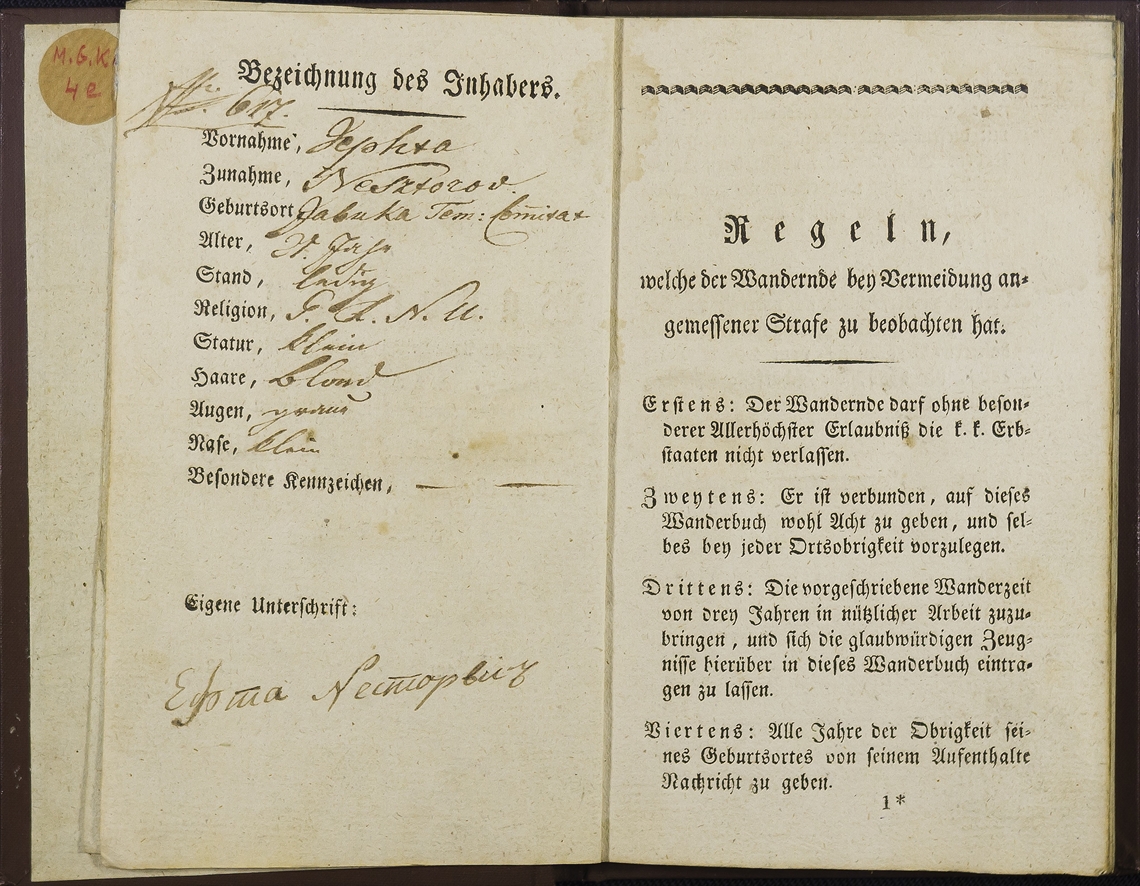 M. G. K.
4e
Bezeichnung des Inhabers.
No. 617.
Vornahme, Jephta
Zunahme, Nesztorov.
Geburtsort, Jabuka Tem: Comitat
Alter, 21. Jahr
Stand, ledig
Religion, G. N. U.
Statur, klein
Haare, blond
Augen, graue
Nase, klein
Besondere Kennzeichen, — —
Eigene Unterschrift:
Ефта Несторвич
Regeln,
welche der Wandernde bey Vermeidung an-
gemessener Strafe zu beobachten hat.
Erstens: Der Wandernde darf ohne beson-
derer Allerhöchster Erlaubniß die k. k. Erb-
staaten nicht verlassen.
Zweytens: Er ist verbunden, auf dieses
Wanderbuch wohl Acht zu geben, und sel-
bes bey jeder Ortsobrigkeit vorzulegen.
Drittens: Die vorgeschriebene Wanderzeit
von drey Jahren in nützlicher Arbeit zuzu-
bringen, und sich die glaubwürdigen Zeug-
nisse hierüber in dieses Wanderbuch eintra-
gen zu lassen.
Viertens: Alle Jahre der Obrigkeit sei-
nes Geburtsortes von seinem Aufenthalte
Nachricht zu geben.
1*